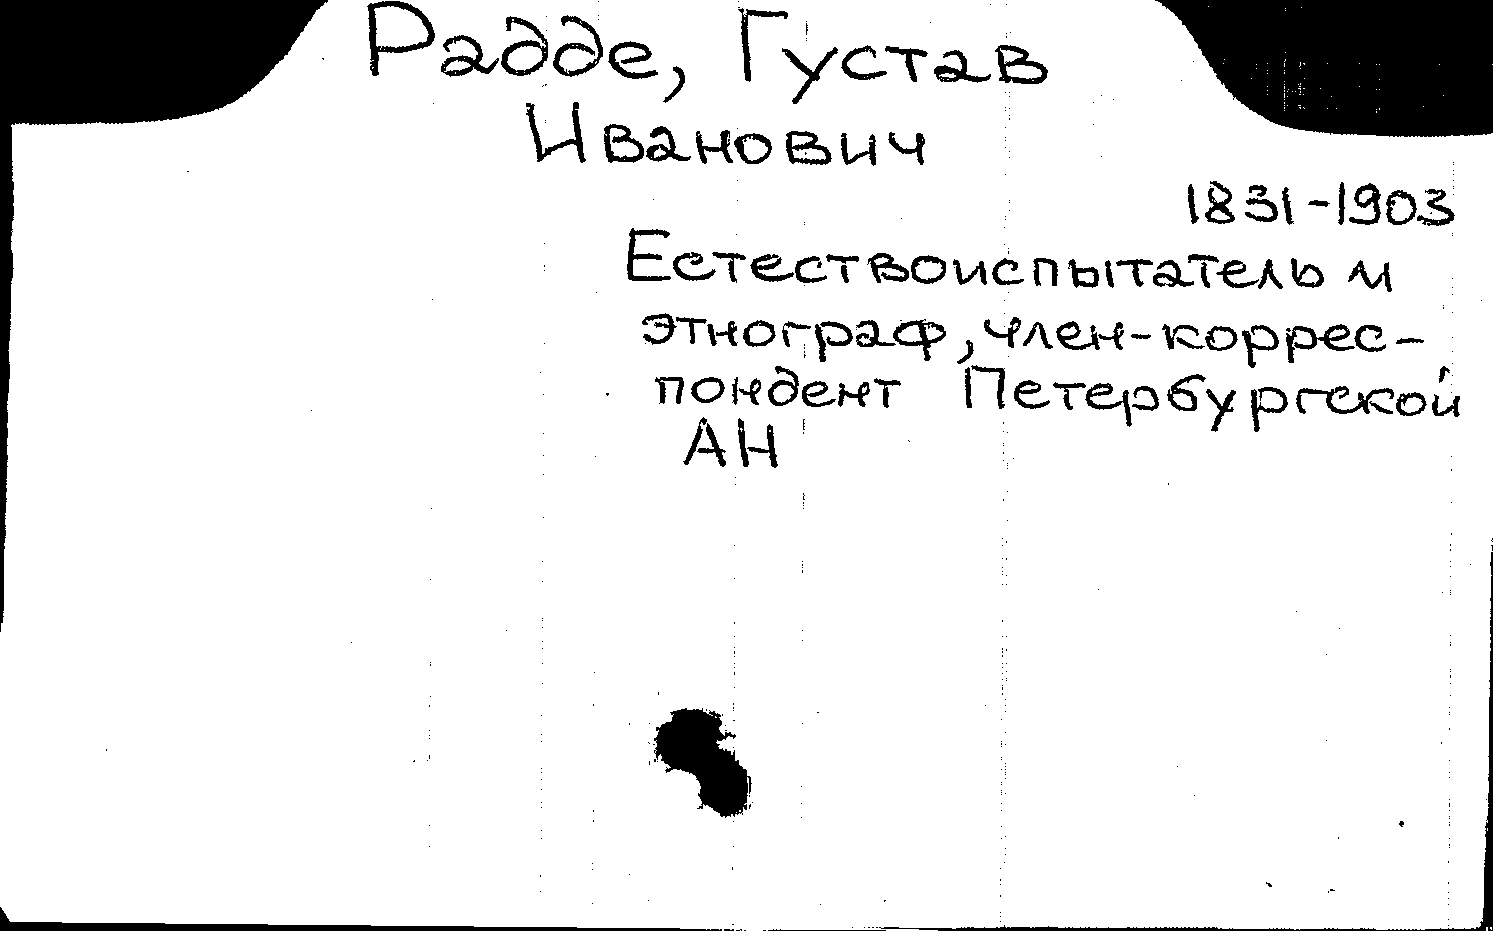 Радде, Густав
Иванович
1831-1903
Естествоиспытатель и
этнограф, член-коррес-
пондент Петербургской
АН